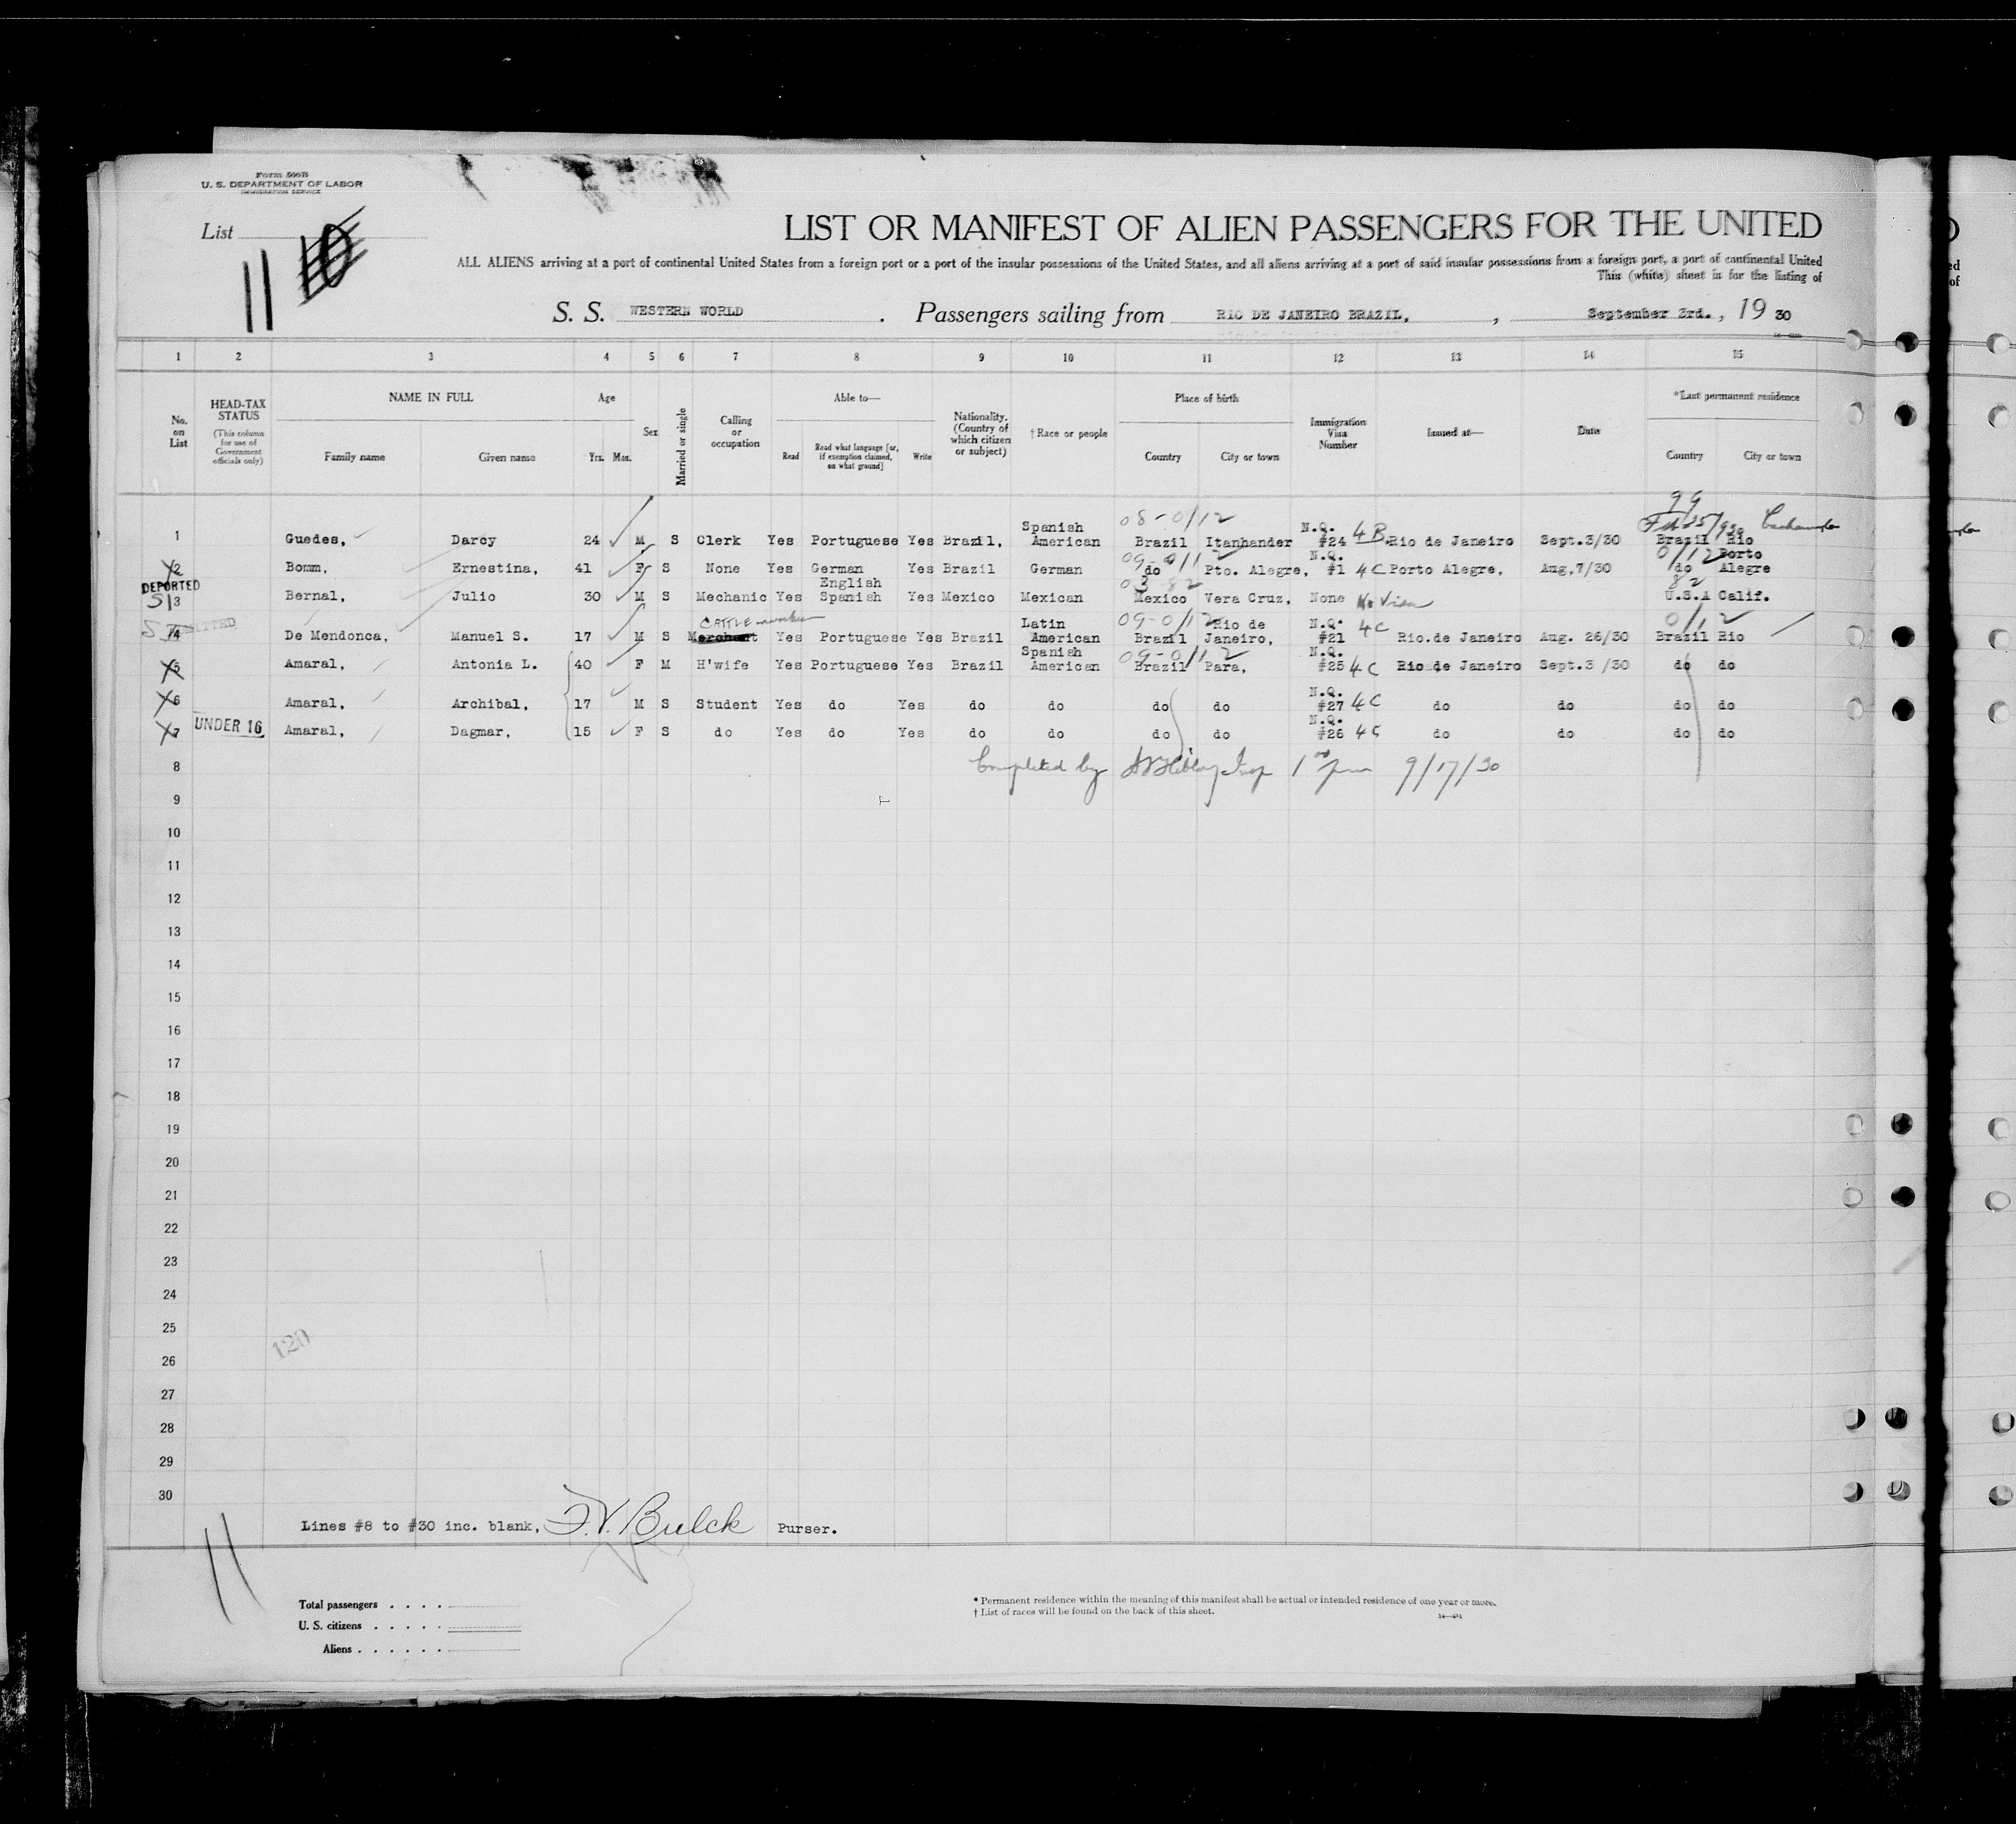 Form 500B
U. S. DEPARTMENT OF LABOR
IMMIGRATION SERVICE
List
11 10
LIST OR MANIFEST OF ALIEN PASSENGERS FOR THE UNITED
ALL ALIENS arriving at a port of continental United States from a foreign port or a port of the insular possessions of the United States, and all aliens arriving at a port of said insular possessions from a foreign port, a port of continental United
This (white) sheet is for the listing of
S. S. WESTERN WORLD . Passengers sailing from RIO DE JANEIRO BRAZIL, , September 3rd. , 19 30
1 2 3 4 5 6 7 8 9 10 11 12 13 14 15
No. on List
HEAD-TAX STATUS (This column for use of Government officials only)
NAME IN FULL Family name Given name
Age Yrs. Mos.
Sex
Married or single
Calling or occupation
Able to— Read Read what language [or, if exemption claimed, on what ground] Write
Nationality. (Country of which citizen or subject)
†Race or people
Place of birth Country City or town
Immigration Visa Number
Issued at—
Date
*Last permanent residence Country City or town
99
1 Guedes, Darcy 24 M S Clerk Yes Portuguese Yes Brazil, Spanish American 08-0/12 Brazil Itanhander N.Q. #24 4B Rio de Janeiro Sept.3/30 Brazil Rio
2 Bomm, Ernestina, 41 F S None Yes German Yes Brazil German 09-0/12 do Pto. Alegre, N.Q. #1 4C Porto Alegre, Aug,7/30 0/12 do Porto Alegre
DEPORTED
3 Bernal, Julio 30 M S Mechanic Yes English Spanish Yes Mexico Mexican 03 82 Mexico Vera Cruz, None No Visa 82 U.S.A Calif.
4 De Mendonca, Manuel S. 17 M S CATTLE Merchant Yes Portuguese Yes Brazil Latin American 09-0/12 Brazil Rio de Janeiro, N.Q. #21 4C Rio.de Janeiro Aug. 26/30 0/12 Brazil Rio
5 Amaral, Antonia L. 40 F M H'wife Yes Portuguese Yes Brazil Spanish American 09-0/12 Brazil Para, N.Q. #25 4C Rio de Janeiro Sept.3 /30 do do
6 Amaral, Archibal, 17 M S Student Yes do Yes do do do do N.Q. #27 4C do do do do
7 UNDER 16 Amaral, Dagmar, 15 F S do Yes do Yes do do do do N.Q. #26 4C do do do do
8 Completed by Insp 1 00 pm 9/17/30
9
10
11
12
13
14
15
16
17
18
19
20
21
22
23
24
25
120
26
27
28
29
30
Lines #8 to #30 inc. blank, Purser.
11
Total passengers . . . .
U. S. citizens . . . . .
Aliens . . . . . .
* Permanent residence within the meaning of this manifest shall be actual or intended residence of one year or more.
† List of races will be found on the back of this sheet.